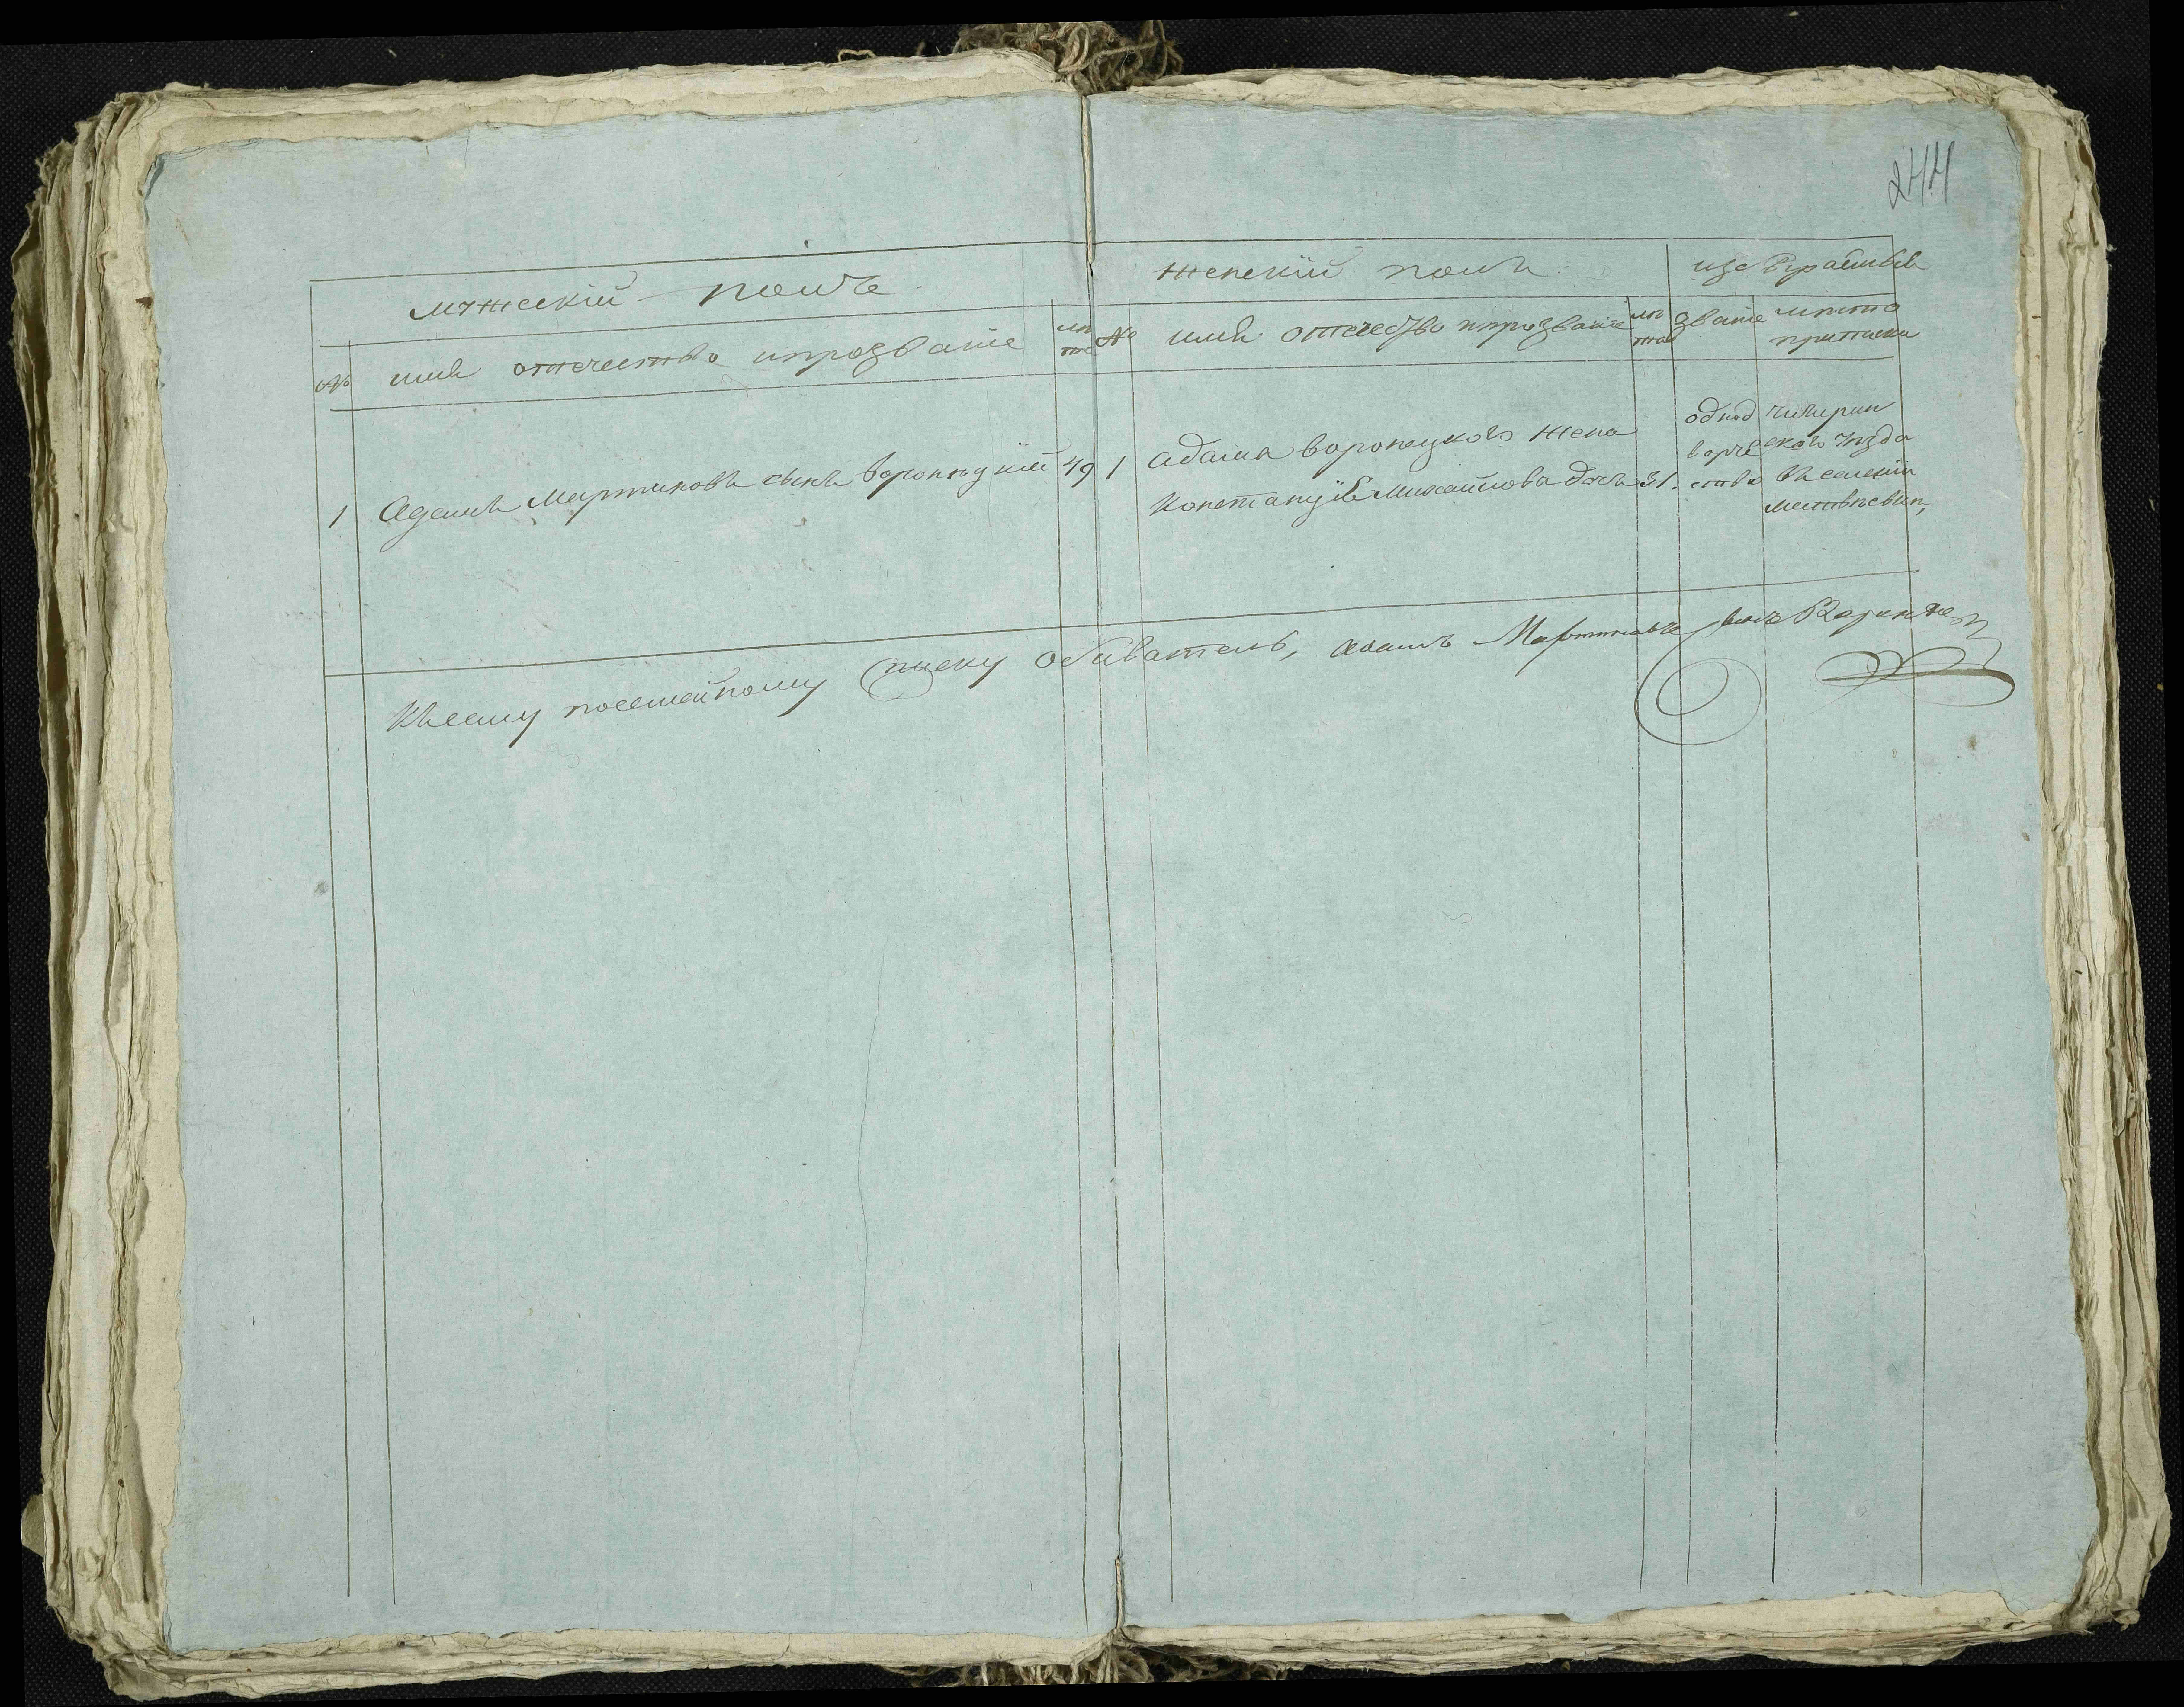 244
мужескій полъ
женскій полъ
избираемые
№ имя отечество ипрозваніе лѣта
№ имя отечество ипрозваніе лѣта
званіе мѣсто приписки
1 Адамъ Мартиновъ сынъ Воронѣцкій 49
1 Адама воронецкого жена
Констанція Михайлова дочь 31.
однод
ворче
ство
чигирин
ского уѣзда
въ селеніи
Ксему посемейному списку обыватель, Адамъ Мартиновъ сынъ